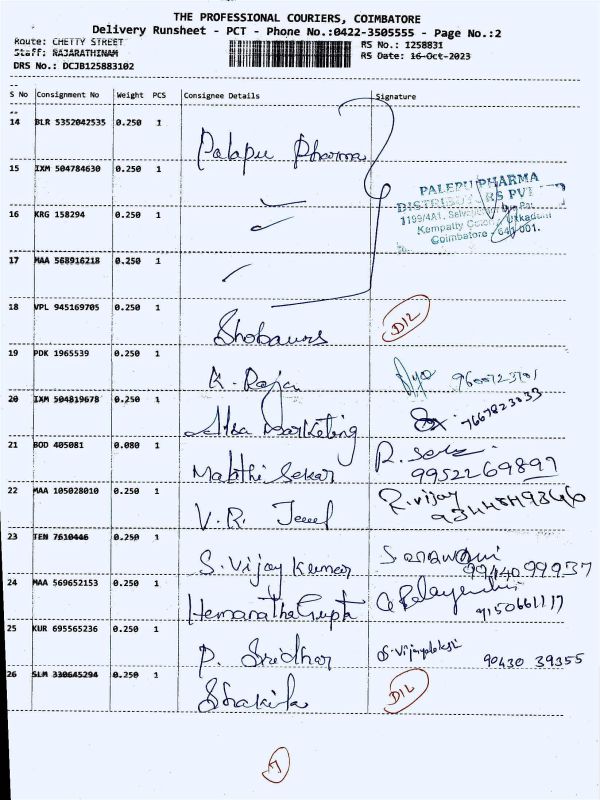 THE PROFESSIONAL COURIERS, COIMBATORE
Delivery Runsheet - PCT - Phone No.:0422-3505555 - Page No.:2
Route: CHETTY STREET
Staff: RAJARATHINAM
DRS No.: DCJB125883102
RS No.: 1258831
RS Date: 16-Oct-2023
S No Consignment No Weight PCS Consignee Details Signature
14 BLR 5352042535 0.250 1 Palapu Pharma
15 IXM 504784630 0.250 1
PALEPU PHARMA
DISTRIBUTORS PVT
1199/4A1,
Kempatty Ukkadam
Coimbatore - 641 001.
16 KRG 158294 0.250 1
17 MAA 568916218 0.250 1
18 VPL 945169705 0.250 1 D/L
19 PDK 1965539 0.250 1 K. Raja
20 IXM 504819678 0.250 1 Marketing 7667823033
21 BOD 405081 0.080 1 Malathi Sekar R. 9952269897
22 MAA 105028010 0.250 1 V.R. R. vijay
23 TEN 7610446 0.250 1 S. Vijay Kumar 9944099937
24 MAA 569652153 0.250 1 Hemanatha Gupth 9150661117
25 KUR 695565236 0.250 1 P. Sridhar 90430 39355
26 SLM 330645294 0.250 1 Shakila D/L